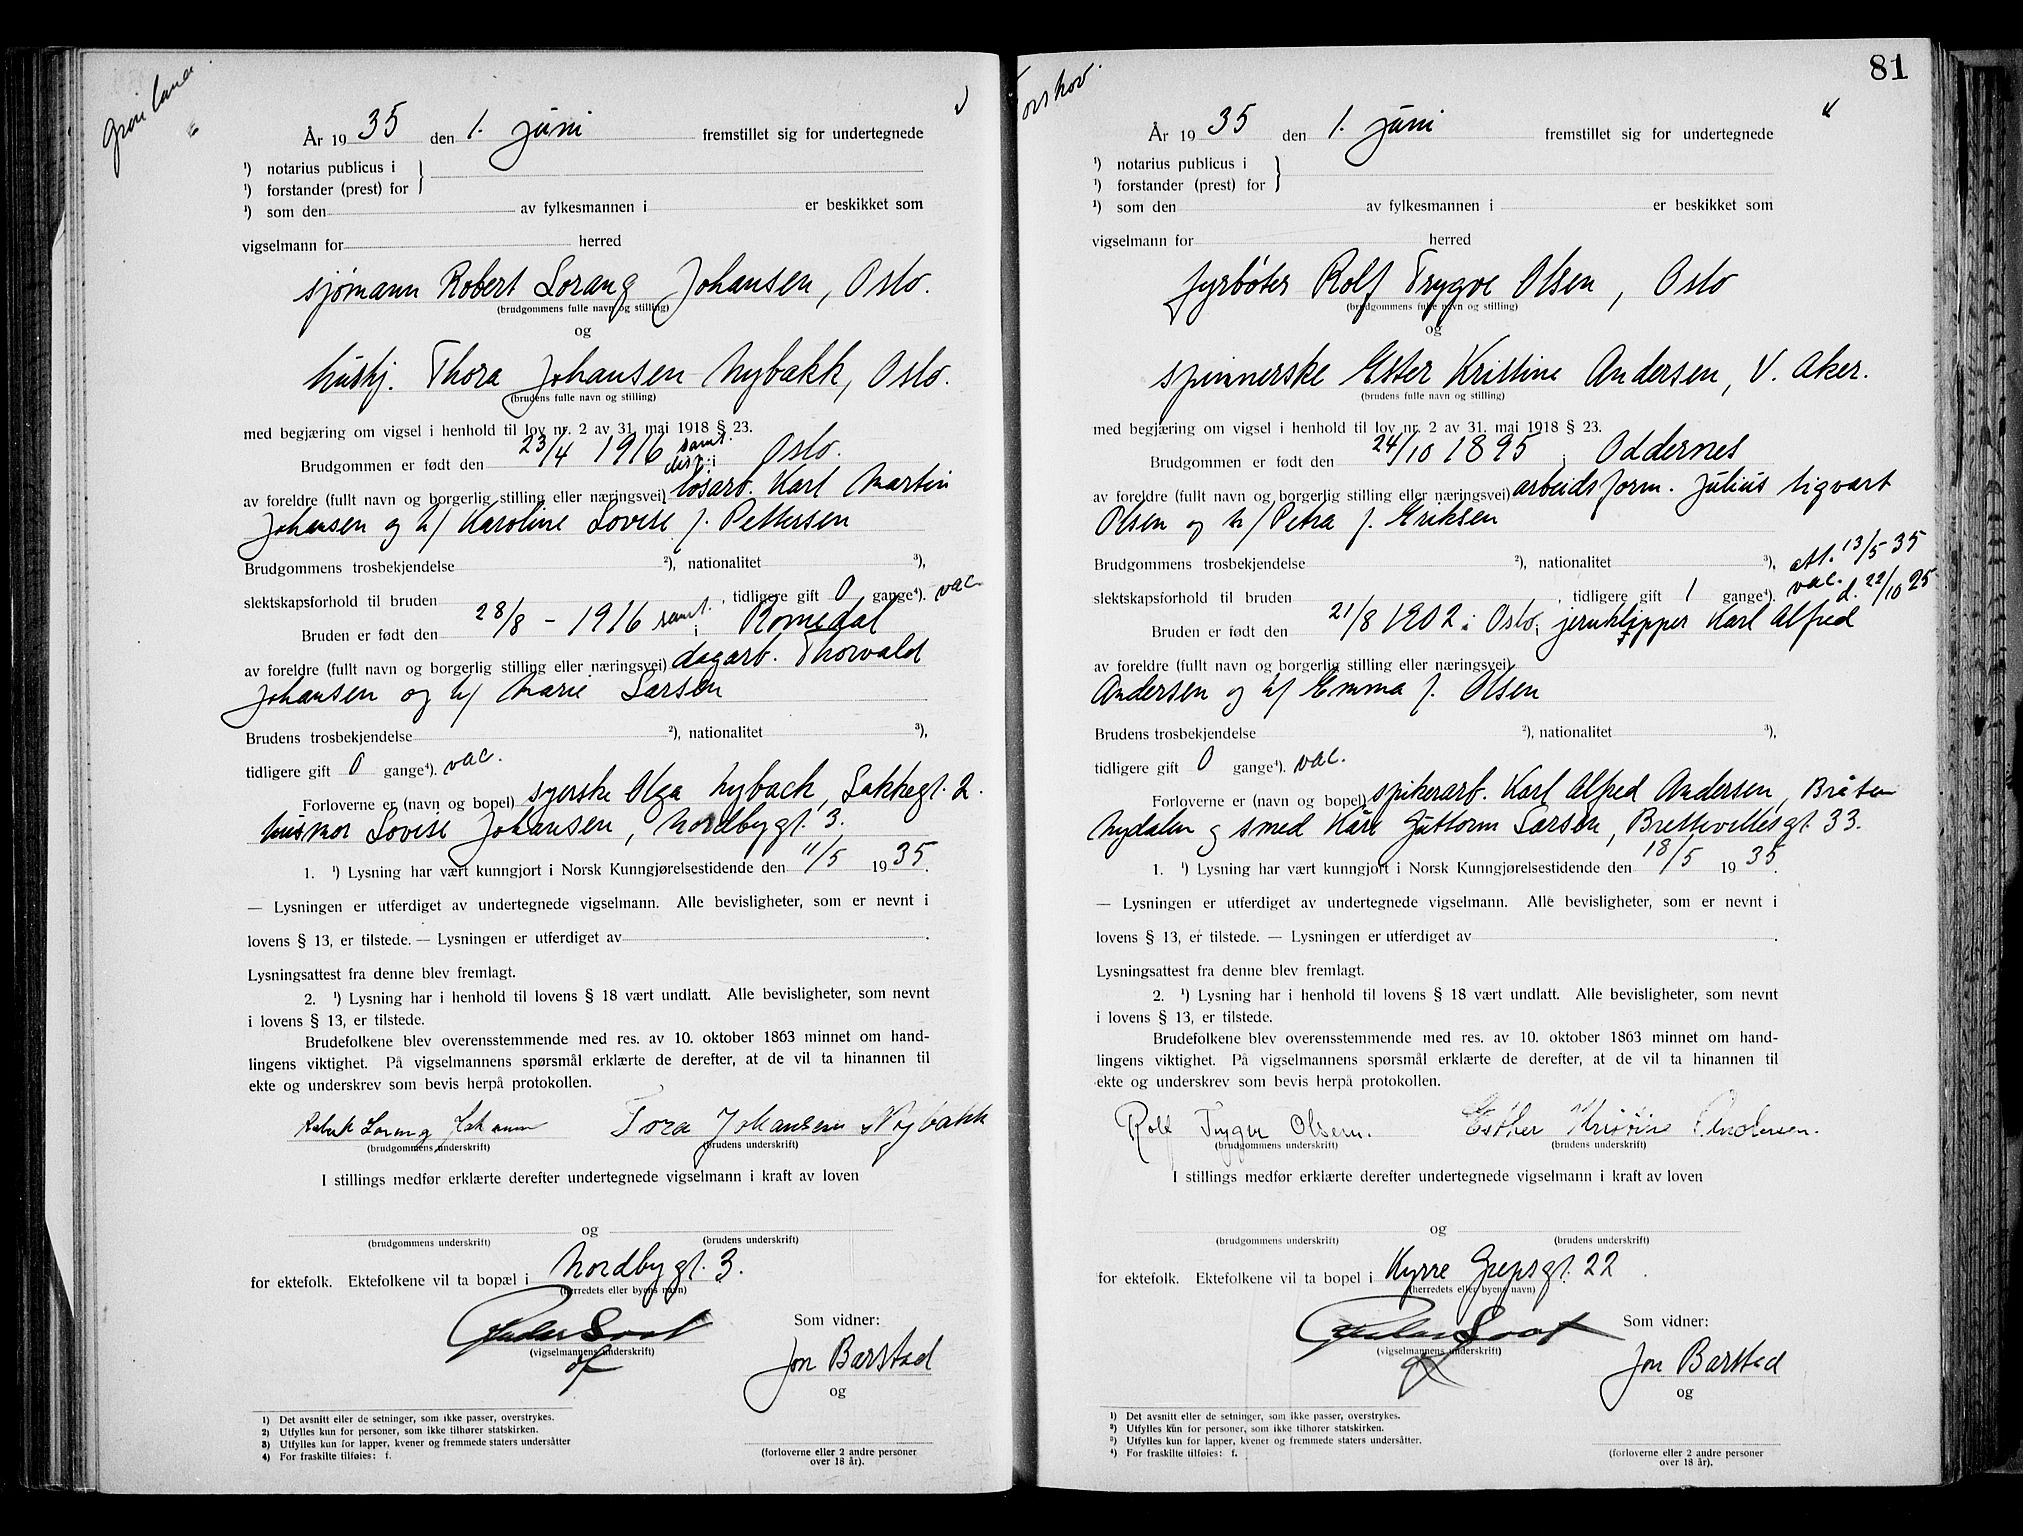 Grønland
År 1935 den 1. juni fremstillet sig for undertegnede
¹) notarius publicus i
¹) forstander (prest) for
¹) som den av fylkesmannen i er beskikket som
vigselmann for herred
sjømann Robert Lorang Johansen, Oslo.
(brudgommens fulle navn og stilling)
og
hushj. Thora Johansen Nybakk, Oslo.
(brudens fulle navn og stilling)
med begjæring om vigsel i henhold til lov nr. 2 av 31. mai 1918 § 23.
Brudgommen er født den 23/4 1916 samt. disp. i Oslo.
av foreldre (fullt navn og borgerlig stilling eller næringsvei) løsarb. Karl Martin
Johansen og h/ Karoline Lovise f. Pettersen
Brudgommens trosbekjendelse ²), nationalitet ³),
slektskapsforhold til bruden , tidligere gift 0 gange⁴). vac.
Bruden er født den 28/8 - 1916 samt. i Romedal
av foreldre (fullt navn og borgerlig stilling eller næringsvei) dagarb. Thorvald
Johansen og h/ Marie Larsen
Brudens trosbekjendelse ²), nationalitet ³),
tidligere gift 0 gange⁴). vac.
Forloverne er (navn og bopel) syerske Olga Nyback, Lakkegt. 2.
husmor Lovise Johansen, Nordbygt. 3.
1. ¹) Lysning har vært kunngjort i Norsk Kunngjørelsestidende den 11/5 1935.
— Lysningen er utferdiget av undertegnede vigselmann. Alle bevisligheter, som er nevnt i
lovens § 13, er tilstede. — Lysningen er utferdiget av .
Lysningsattest fra denne blev fremlagt.
2. ¹) Lysning har i henhold til lovens § 18 vært undlatt. Alle bevisligheter, som nevnt
i lovens § 13, er tilstede.
Brudefolkene blev overensstemmende med res. av 10. oktober 1863 minnet om hand-
lingens viktighet. På vigselmannens spørsmål erklærte de derefter, at de vil ta hinannen til
ekte og underskrev som bevis herpå protokollen.
Robert Lorang Johansen Tora Johansen Nybakk
(brudgommens underskrift) (brudens underskrift)
I stillings medfør erklærte derefter undertegnede vigselmann i kraft av loven
og
(brudgommens underskrift) (brudens underskrift)
for ektefolk. Ektefolkene vil ta bopæl i Nordbygt. 3.
(herredets eller byens navn)
Som vidner:
(vigselmannens underskrift)
Jon Barstad
og
1) Det avsnitt eller de setninger, som ikke passer, overstrykes.
2) Utfylles kun for personer, som ikke tilhører statskirken.
3) Utfylles kun for lapper, kvener og fremmede staters undersåtter
4) For fraskilte tilføies: f.
(forloverne eller 2 andre personer
over 18 år).
81
Torshov.
År 1935 den 1. juni fremstillet sig for undertegnede
¹) notarius publicus i
¹) forstander (prest) for
¹) som den av fylkesmannen i er beskikket som
vigselmann for herred
fyrbøter Rolf Trygve Olsen, Oslo
(brudgommens fulle navn og stilling)
og
spinnerske Ester Kristine Andersen, V. Aker.
(brudens fulle navn og stilling)
med begjæring om vigsel i henhold til lov nr. 2 av 31. mai 1918 § 23.
Brudgommen er født den 24/10 1895 i Oddernes
av foreldre (fullt navn og borgerlig stilling eller næringsvei) arbeidsform. Julius Sigvart
Olsen og h/ Petra f. Eriksen
Brudgommens trosbekjendelse ²), nationalitet ³), att. 13/5 35
slektskapsforhold til bruden , tidligere gift 1 gange⁴). vac. d. 22/10 25
Bruden er født den 21/8 1902 i Oslo, jernklipper Karl Alfred
av foreldre (fullt navn og borgerlig stilling eller næringsvei)
Andersen og h/ Emma f. Olsen
Brudens trosbekjendelse ²), nationalitet ³),
tidligere gift 0 gange⁴). vac.
Forloverne er (navn og bopel) spikerarb. Karl Alfred Andersen, Bråten
Nydalen og smed Kåre Guttorm Larsen, Brettevillesgt. 33.
1. ¹) Lysning har vært kunngjort i Norsk Kunngjørelsestidende den 18/5 1935.
— Lysningen er utferdiget av undertegnede vigselmann. Alle bevisligheter, som er nevnt i
lovens § 13, er tilstede. — Lysningen er utferdiget av .
Lysningsattest fra denne blev fremlagt.
2. ¹) Lysning har i henhold til lovens § 18 vært undlatt. Alle bevisligheter, som nevnt
i lovens § 13, er tilstede.
Brudefolkene blev overensstemmende med res. av 10. oktober 1863 minnet om hand-
lingens viktighet. På vigselmannens spørsmål erklærte de derefter, at de vil ta hinannen til
ekte og underskrev som bevis herpå protokollen.
Rolf Trygve Olsen. Esther Kristine Andersen.
(brudgommens underskrift) (brudens underskrift)
I stillings medfør erklærte derefter undertegnede vigselmann i kraft av loven
og
(brudgommens underskrift) (brudens underskrift)
for ektefolk. Ektefolkene vil ta bopel i Kyrre Grepsgt. 22.
(herredets eller byens navn)
Som vidner:
(vigselmannens underskrift)
Jon Barstad
og
¹) Det avsnitt eller de setninger, som ikke passer, overstrykes.
²) Utfylles kun for personer, som ikke tilhører statskirken.
³) Utfylles kun for lapper, kvener og fremmede staters undersåtter.
⁴) For fraskilte tilføies: f.
(forloverne eller 2 andre personer
over 18 år).